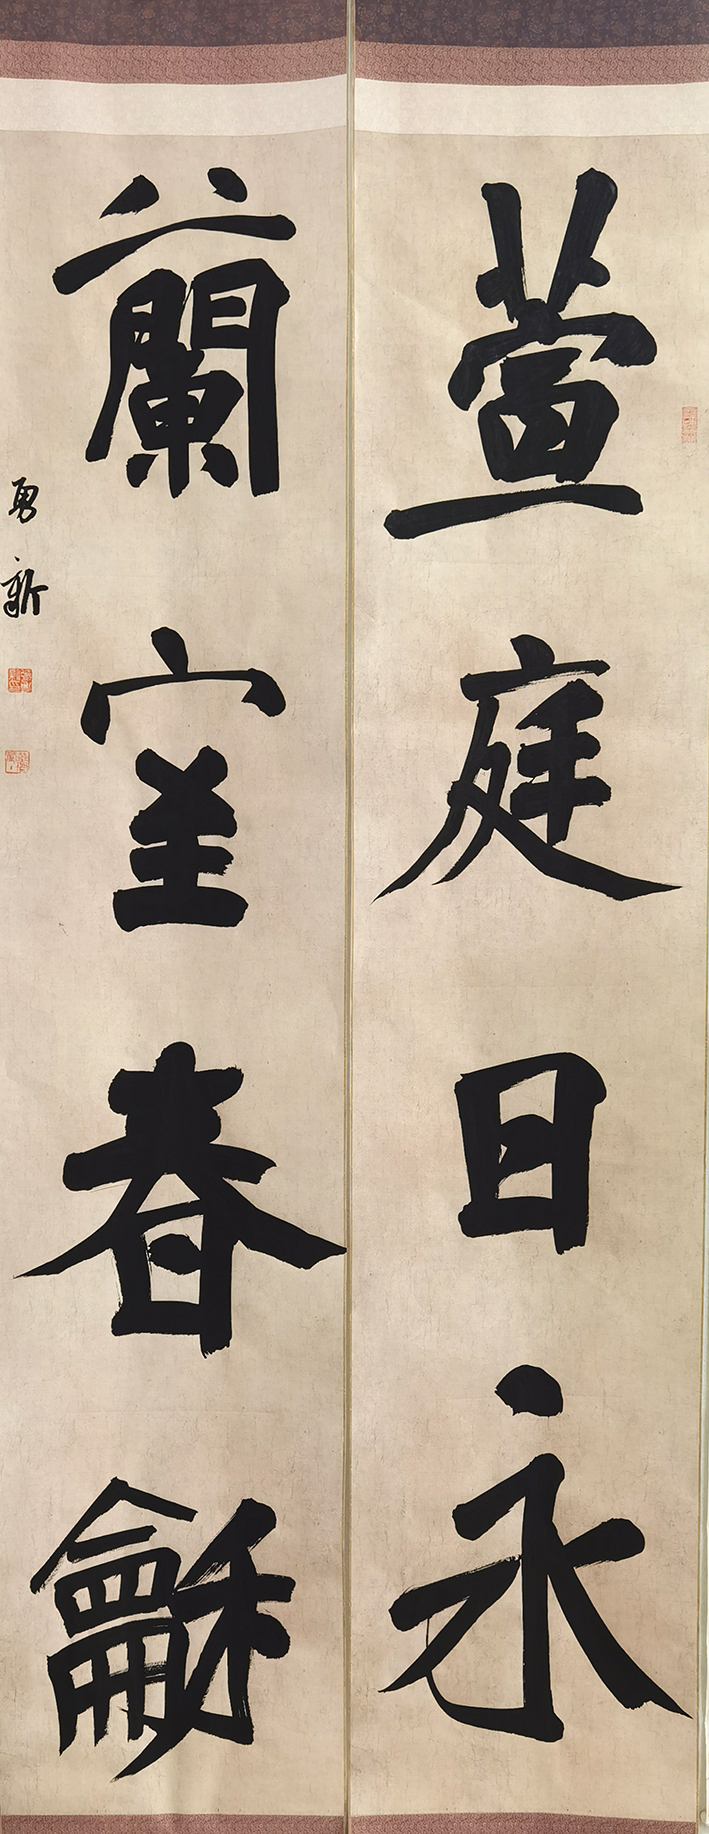 萱庭日永
蘭室春龢
勇新